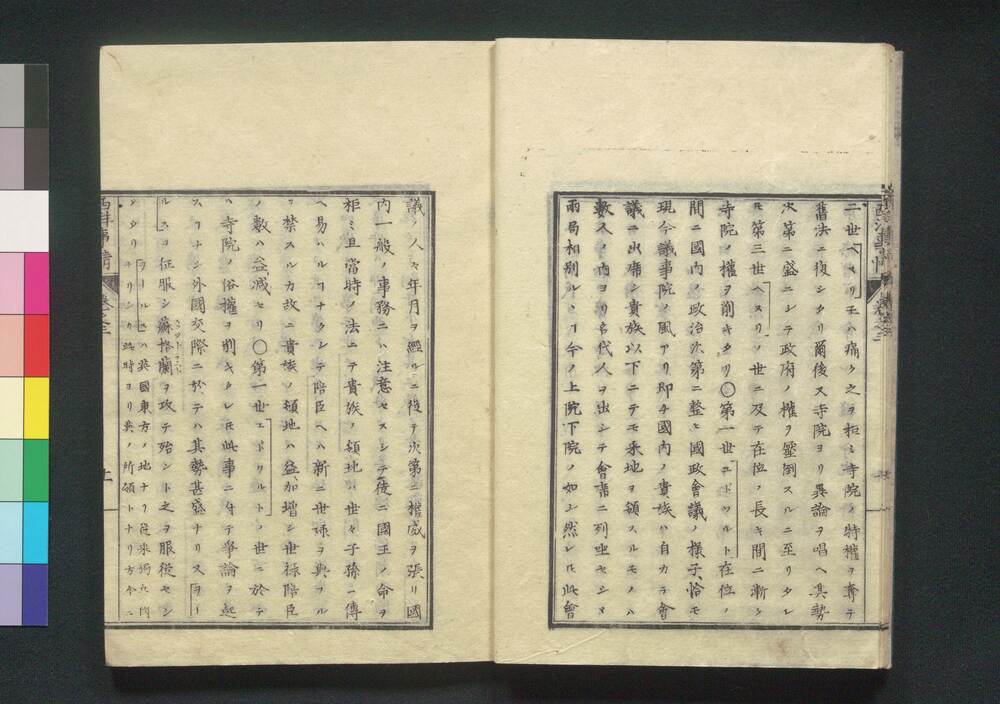 二世「ヘヌリ」王ハ痛ク之ヲ拒ミ寺院ノ特權ヲ奪テ
舊法ニ復シタリ爾後又寺院ヨリ異論ヲ唱ヘ其勢
次第ニ盛ニシテ政府ノ權ヲ壓倒スルニ至リタレ
𪜈第三世「ヘヌリ」ノ世ニ及テ在位ノ長キ間ニ漸ク
寺院ノ權ヲ削キタリ〇第一世「エドワルト」在位ノ
間ニ國内ノ政治次第ニ整ヒ國政會議ノ樣子恰モ
現今議事院ノ風アリ即チ國内ノ貴族ハ自カラ會
議ニ出席シ貴族以下ニテモ釆地ヲ領スルモノハ
數人ノ内ヨリ名代人ヲ出シテ會議ニ列坐セシメ
兩局相別ルヽヿ今ノ上院下院ノ如シ然レ𪜈此會
議ノ人々年月ヲ經ルニ從テ次第ニ權威ヲ張リ國
内一般ノ事務ニハ注意セスシテ徒ニ國王ノ命ヲ
拒ミ且當時ノ法ニテ貴族ノ領地ハ世々子孫ニ傳
ヘ易ハルヿナクシテ陪臣ヘハ新ニ世祿ヲ與フル
ヲ禁スルカ故ニ貴族ノ領地ハ益加增シ世祿陪臣
ノ數ハ益減セリ〇第一世「エドワルト」ノ世ニ於テ
ハ寺院ノ俗權ヲ削キタレ𪜈此事ニ付テ爭論ヲ起
スヿナシ外國交際ニ於テハ其勢甚盛ナリス「ヲー
ルス」ヲ征服シ蘇格蘭ヲ攻テ殆ント之ヲ服從セシ
西洋事情 卷之三